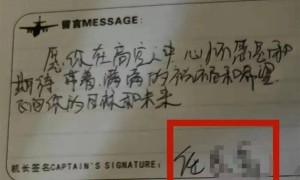 留言MESSAGE:
愿你在高空中，心怀感恩和
期待 带着满满的祝福和希望
飞向你的目标和未来
机长签名CAPTAIN'S SIGNATURE:
任